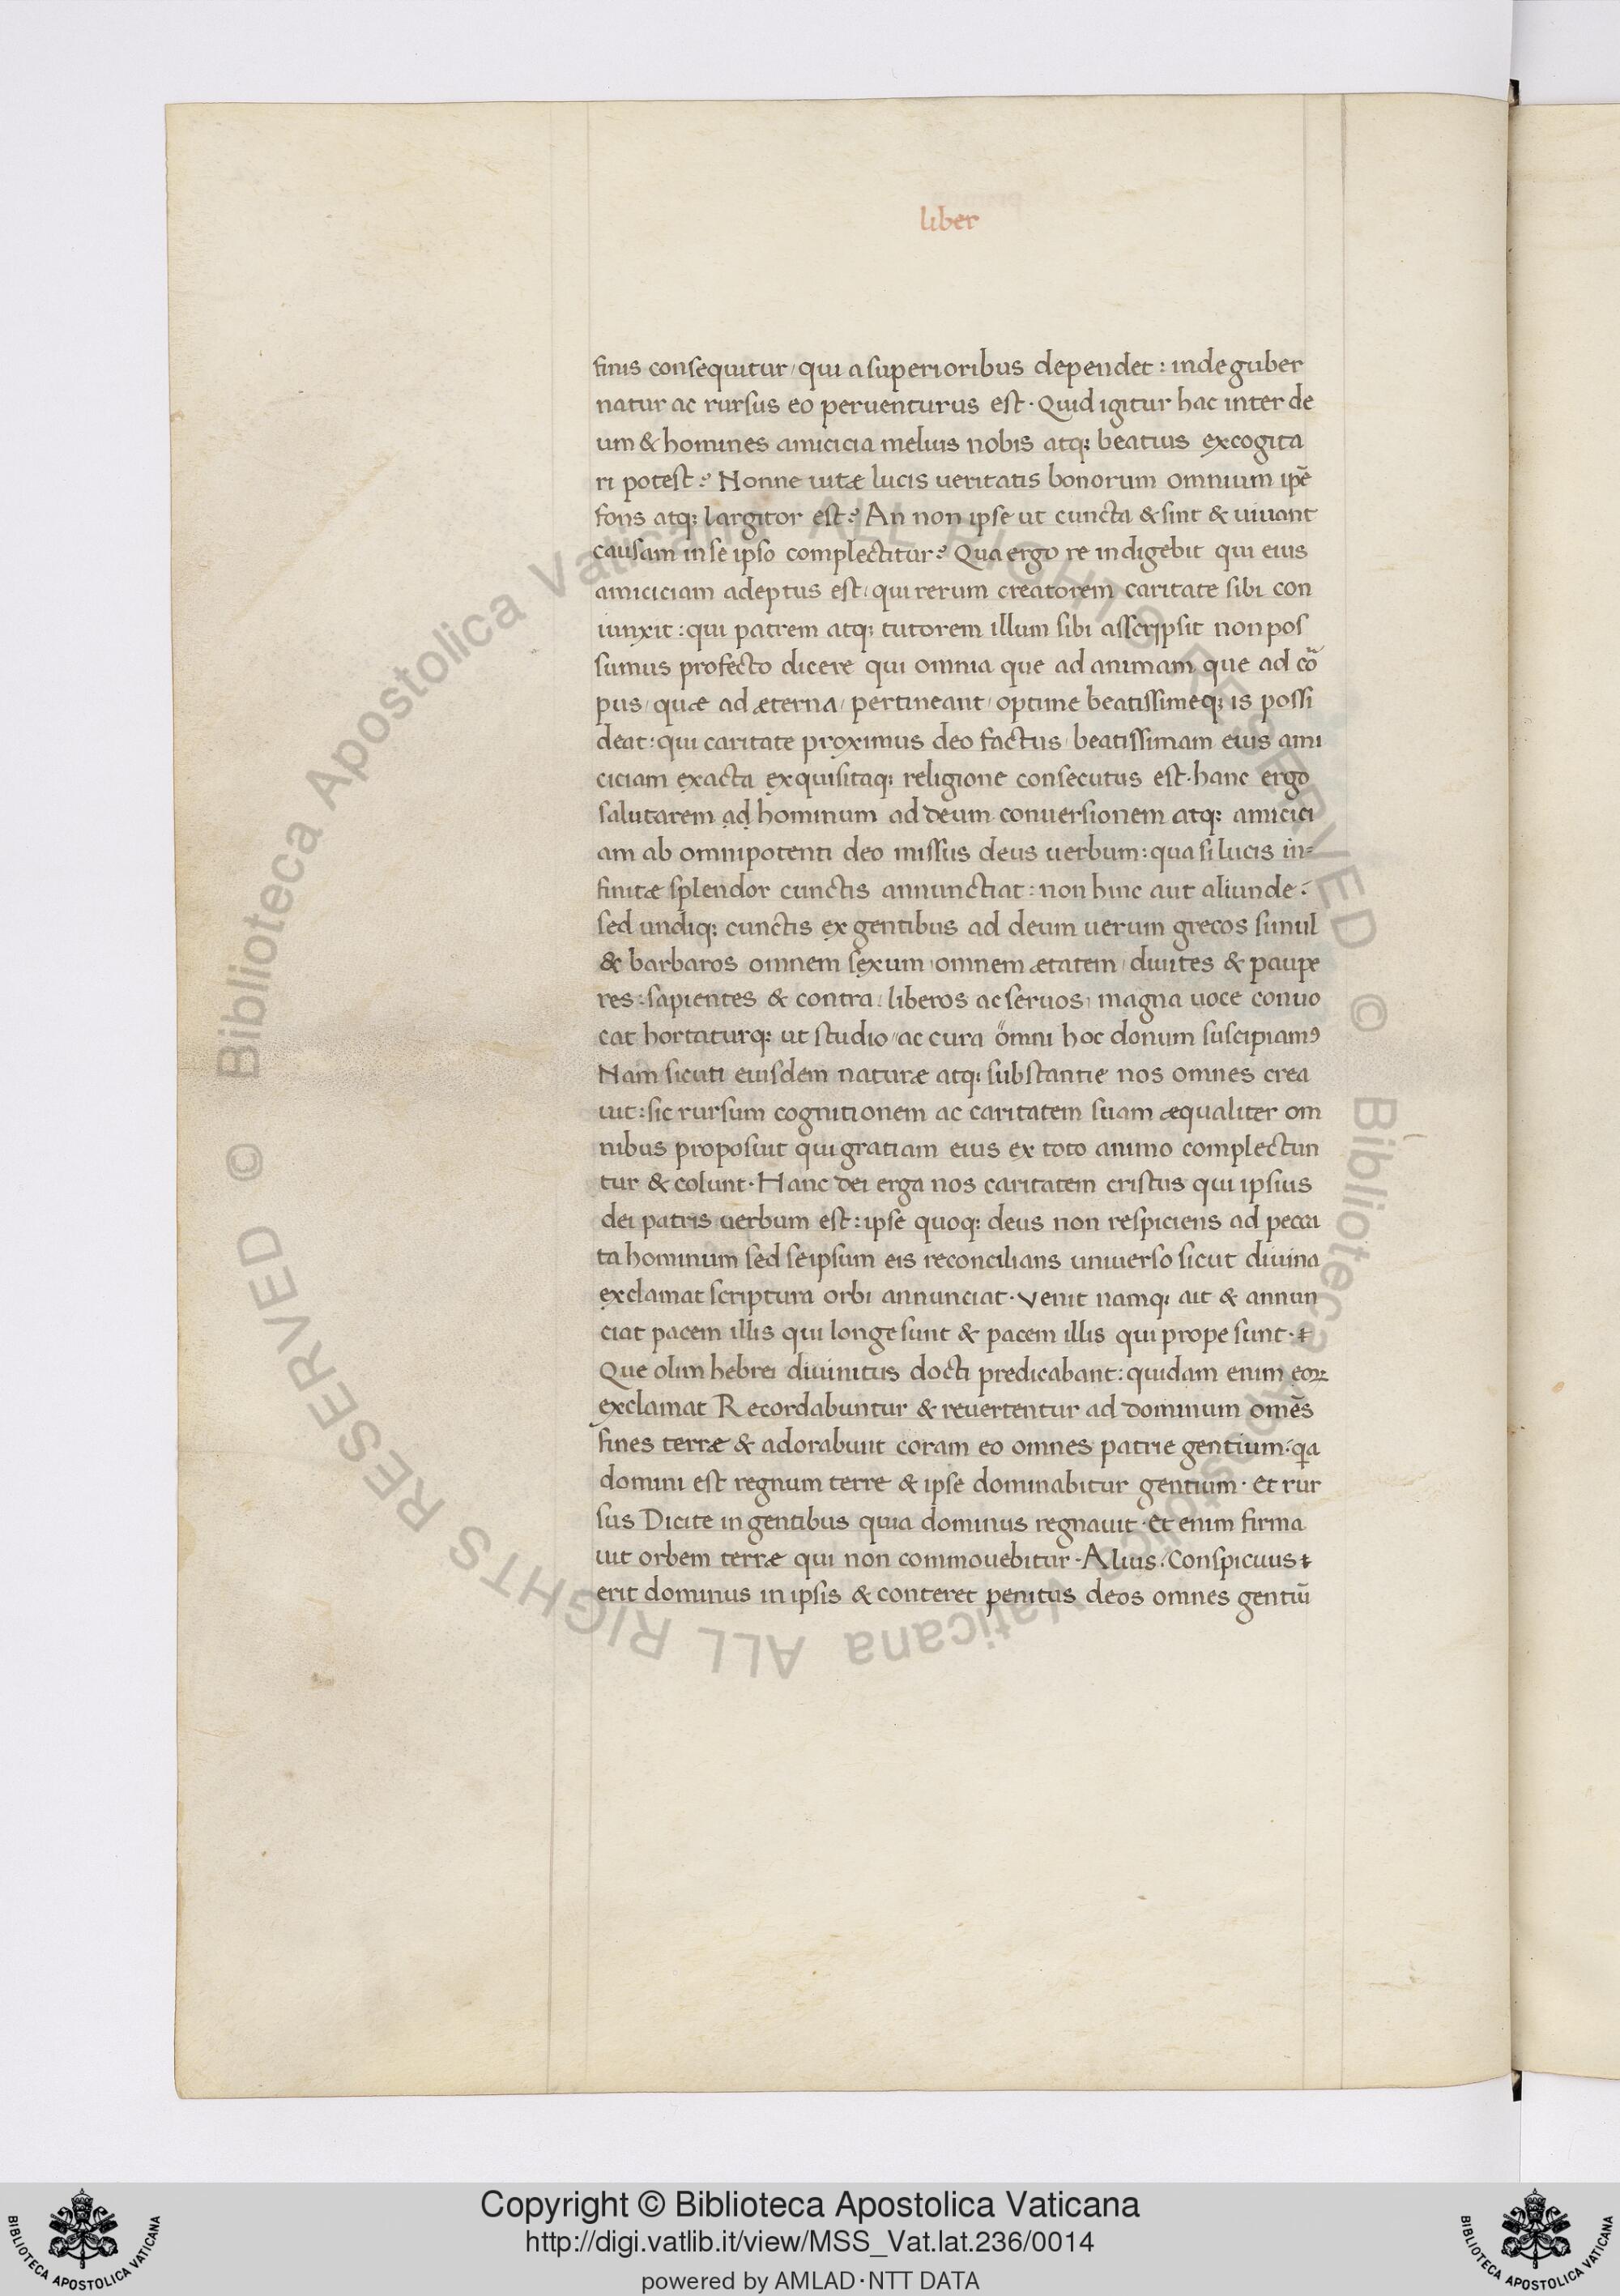 liber
finis consequitur, qui a superioribus dependet: inde guber
natur ac rursus eo peruenturus est. Quid igitur hac inter de
um & homines amicicia melius nobis atq; beatius excogita
ri potest? Nonne uitæ lucis ueritatis bonorum omnium ip̄e
fons atq; largitor est? An non ipse ut cuncta & sint & uiuant
causam in se ipso complectitur? Qua ergo re indigebit qui eius
amiciciam adeptus est, qui rerum creatorem caritate sibi con
iunxit: qui patrem atq; tutorem illum sibi asscripsit non pos
sumus profecto dicere qui omnia que ad animam que ad co
pus, quæ ad æterna, pertineant, optime beatissimeq; is possi
deat: qui caritate proximus deo factus, beatissimam eius ami
ciciam exacta exquisitaq; religione consecutus est. hanc ergo
salutarem ạḍ hominum ad deum conuersionem atq; amicici
am ab omnipotenti deo missus deus uerbum: quasi lucis in=
finitæ splendor cunctis annunctiat: non hinc aut aliunde:
sed undiq; cunctis ex gentibus ad deum uerum grecos simul
& barbaros omnem sexum, omnem ætatem, diuites & paupe
res: sapientes & contra: liberos ac seruos, magna uoce conuo
cat hortaturq; ut studio "ac cura "omni hoc donum suscipiamꝰ
Nam sicuti eiusdem naturæ atq; substantie nos omnes crea
uit: sic rursum cognitionem ac caritatem suam æqualiter om
nibus proposuit qui gratiam eius ex toto animo complectun
tur & colunt. Hanc dei erga nos caritatem cristus qui ipsius
dei patris uerbum est: ipse quoq; deus non respiciens ad pecca
ta hominum sed seipsum eis reconcilians uniuerso sicut diuina
exclamat scriptura orbi annunciat. Venit namq; ait & annun
ciat pacem illis qui longe sunt & pacem illis qui prope sunt.
Que olim hebrei diuinitus docti predicabant: quidam enim eoꝝ
exclamat Recordabuntur & reuertentur ad dominum omēs
fines terræ & adorabunt coram eo omnes patrie gentium: qa
domini est regnum terre & ipse dominabitur gentium. Et rur
sus Dicite in gentibus quia dominus regnauit. Et enim firma
uit orbem terræ qui non commouebitur. Alius: Conspicuus
erit dominus in ipsis & conteret penitus deos omnes gentiū
© Biblioteca Apostolica Vaticana ALL RIGHTS RESERVED
© Biblioteca Apostolica Vaticana ALL RIGHTS RESERVED
Copyright © Biblioteca Apostolica Vaticana
http://digi.vatlib.it/view/MSS_Vat.lat.236/0014
powered by AMLAD·NTT DATA
BIBLIOTECA APOSTOLICA VATICANA
BIBLIOTECA APOSTOLICA VATICANA